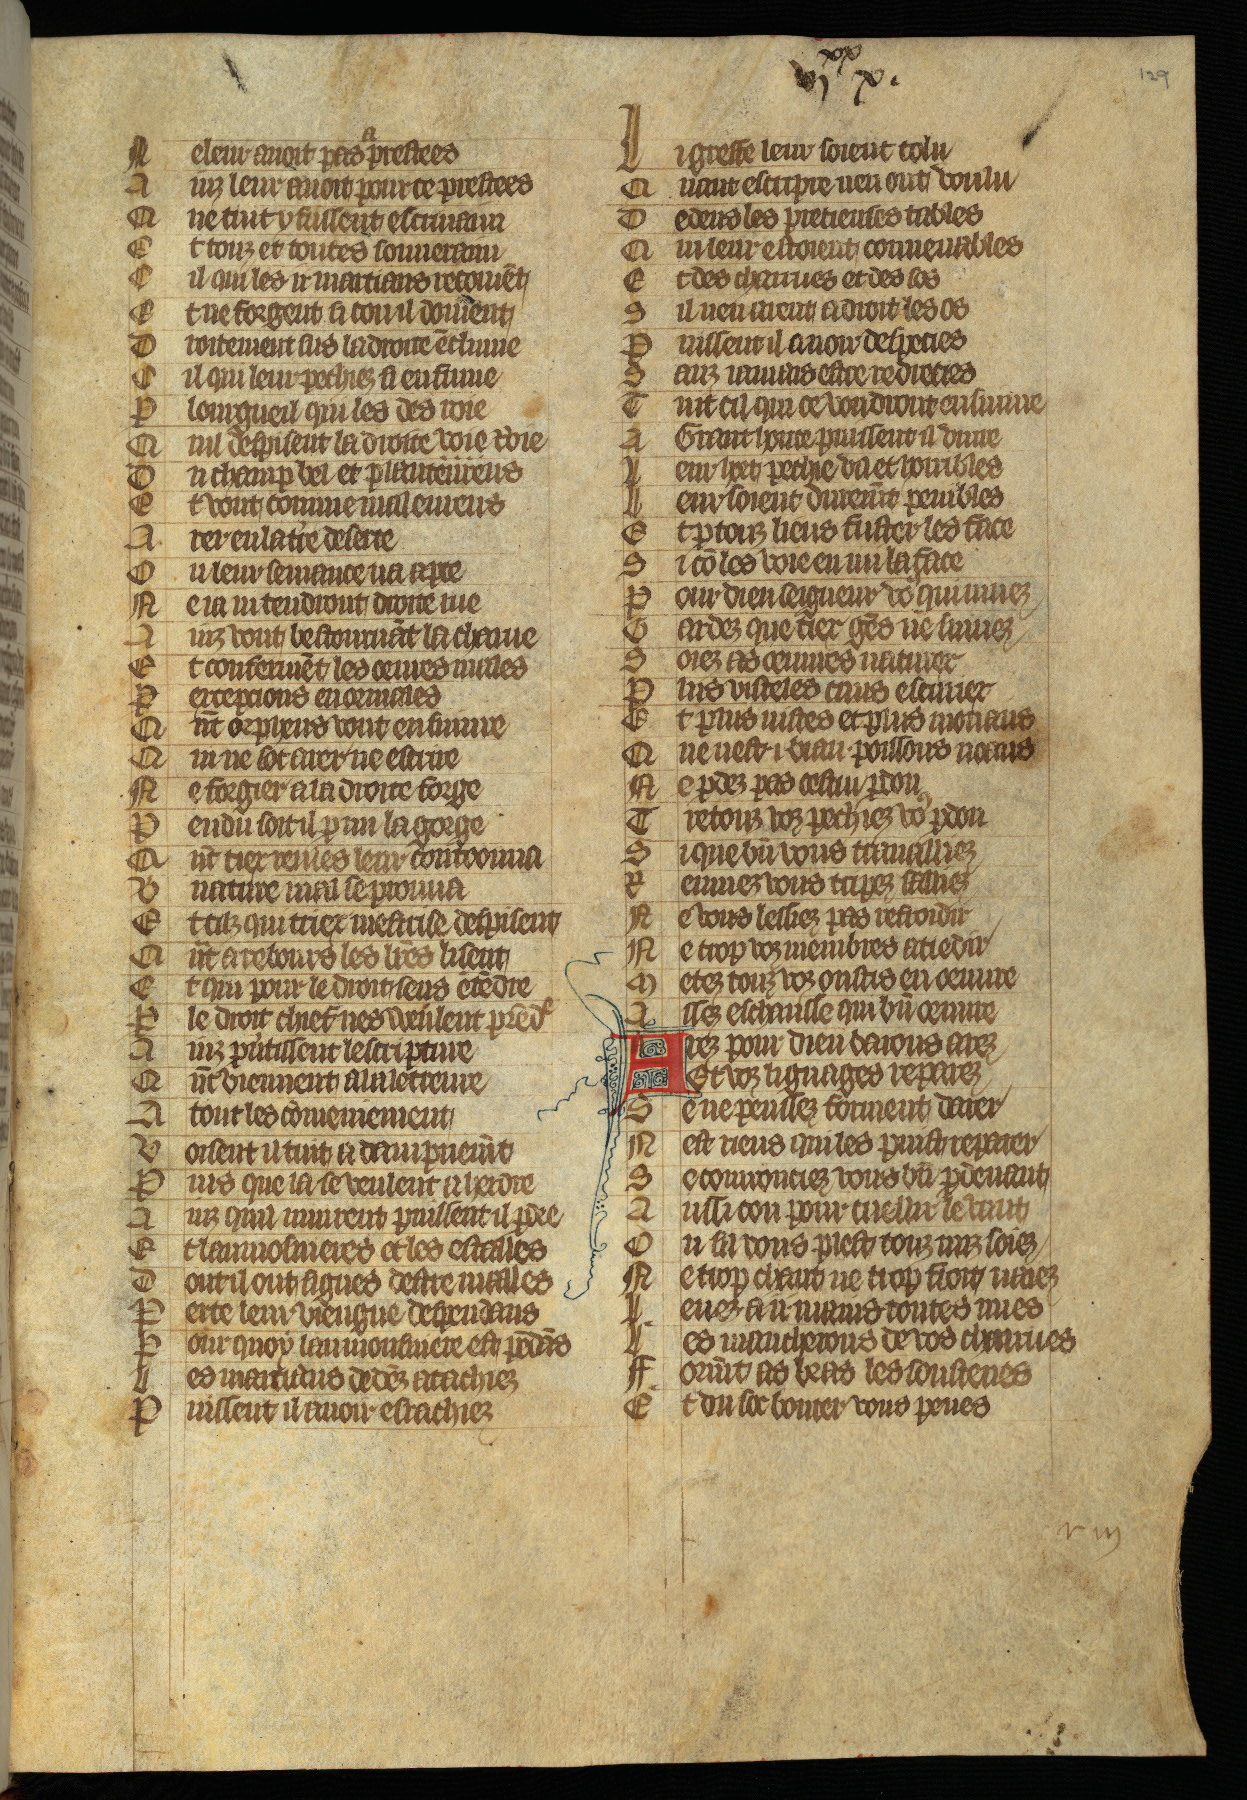 vi xx x.
129
N e leur auoit pas a prestees
A inz leur auoit pour ce prestees
Q ue tuit y fussent escriuain
E t touz et toutes souuerain
C il qui les ii martiaus recoiuēt
E t ne forgent si con il doiuent
D roitement sus la droite ēclume
C il qui leur pechiez si enfume
P lourgueil qui les desuoie
Q uil despisent la droite voie
D u champ bel et planteureus
E t vont comme maleureus
A rer en la t're deserte
O u leur semance va a perte
N e ia ni tendront droite rue
A inz vont bestournāt la charue
E t conferment les oeures males
P ercepcions enormales
Q n̄t orpheus vont ensuiure
Q ui ne sot arer ne escriure
N e forgier a la droite forge
P endu soit il p̄ mi la gorge
Q n̄t tiex rieules leur controuua
V nature mal se prouua
E t cilz qui tiex mestrise despisent
Q n̄t a rebours les lr̄es lisent
E t qui pour le droit sens ētēdre
P le droit chief nes veulent prēdr̄
A inz p̄uertissent lescripture
Q n̄t viennent a la lettreure
A tout lescōmeniement
V oisent il tuit a dampnemēt
P uis que la se veulent aherdre
A inz quil muirent puissent il p̄dre
E t laumosnieres et les estalles
D ont il ont signes destre malles
P erte leur viengne des pendans
P our quoy laumosniere est pēdās
L es martiaus dedēz atachiez
P uissent il auoir esrachiez
L i greffe leur soient tolu
Q uant escripre nen ont voulu
D edens les precieuses tables
Q ui leur estoient conuenables
E t des charrues et des sos
S il nen arent a droit les os
P uissent il auoir despecies
S anz iamais estre redrecies
T uit cil qui ce voudront ensuiure
A Grant honte puissent il viure
L eur lort pechie ort et horribles
L eur soient durem̄t penibles
E t p̄ touz liens fuster les face
S i cō les voie en mi la face
P our dieu seigneur vo' qui viuez
G ardez que tiex gēs ne suiuez
S oiez as oeuures naturex
P lus visteles cuns escuriex
E t plus iustes et plus mouuans
Q ue nest i. biau poissons noans
N e p̄dez pas cestui p̄don
T retouz voz pechiez vo' p̄don
S i que bn̄ vous trauailliez
R emuez vous tripez sailliez
N e vous lessiez pas refroidir
N e trop voz membres atiedir
M etez touz voz oustis en oeuure
A ssez eschausse qui bn̄ oeuure
A rez pour dieu barons arez
Et voz lignages reparez
S e ne pensez forment darer
N est riens qui les puist reparer
S ecourciez vous bn̄ p̄ deuant
A ussi con pour cueillir le vent
O u sil vous plest touz nuz soiez
N e trop chaut ne trop froit naiez
L euez a ii mains toutes nues
L es mancherons de vos charrues
F orm̄t as bras les soustenes
E t du soc bouter vous penes
v iij